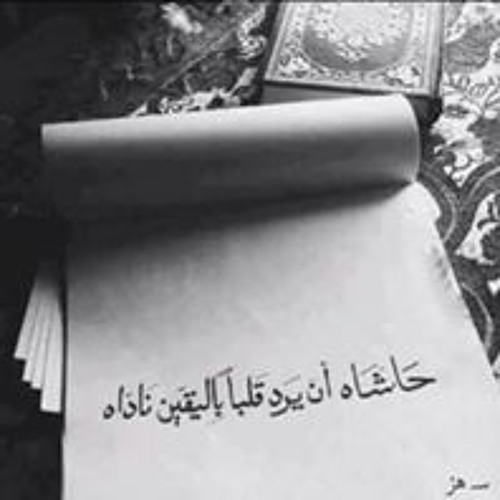 حَاشَاه أن يَرد قَلباً بِاليقَين نَادَاه
ــ هز